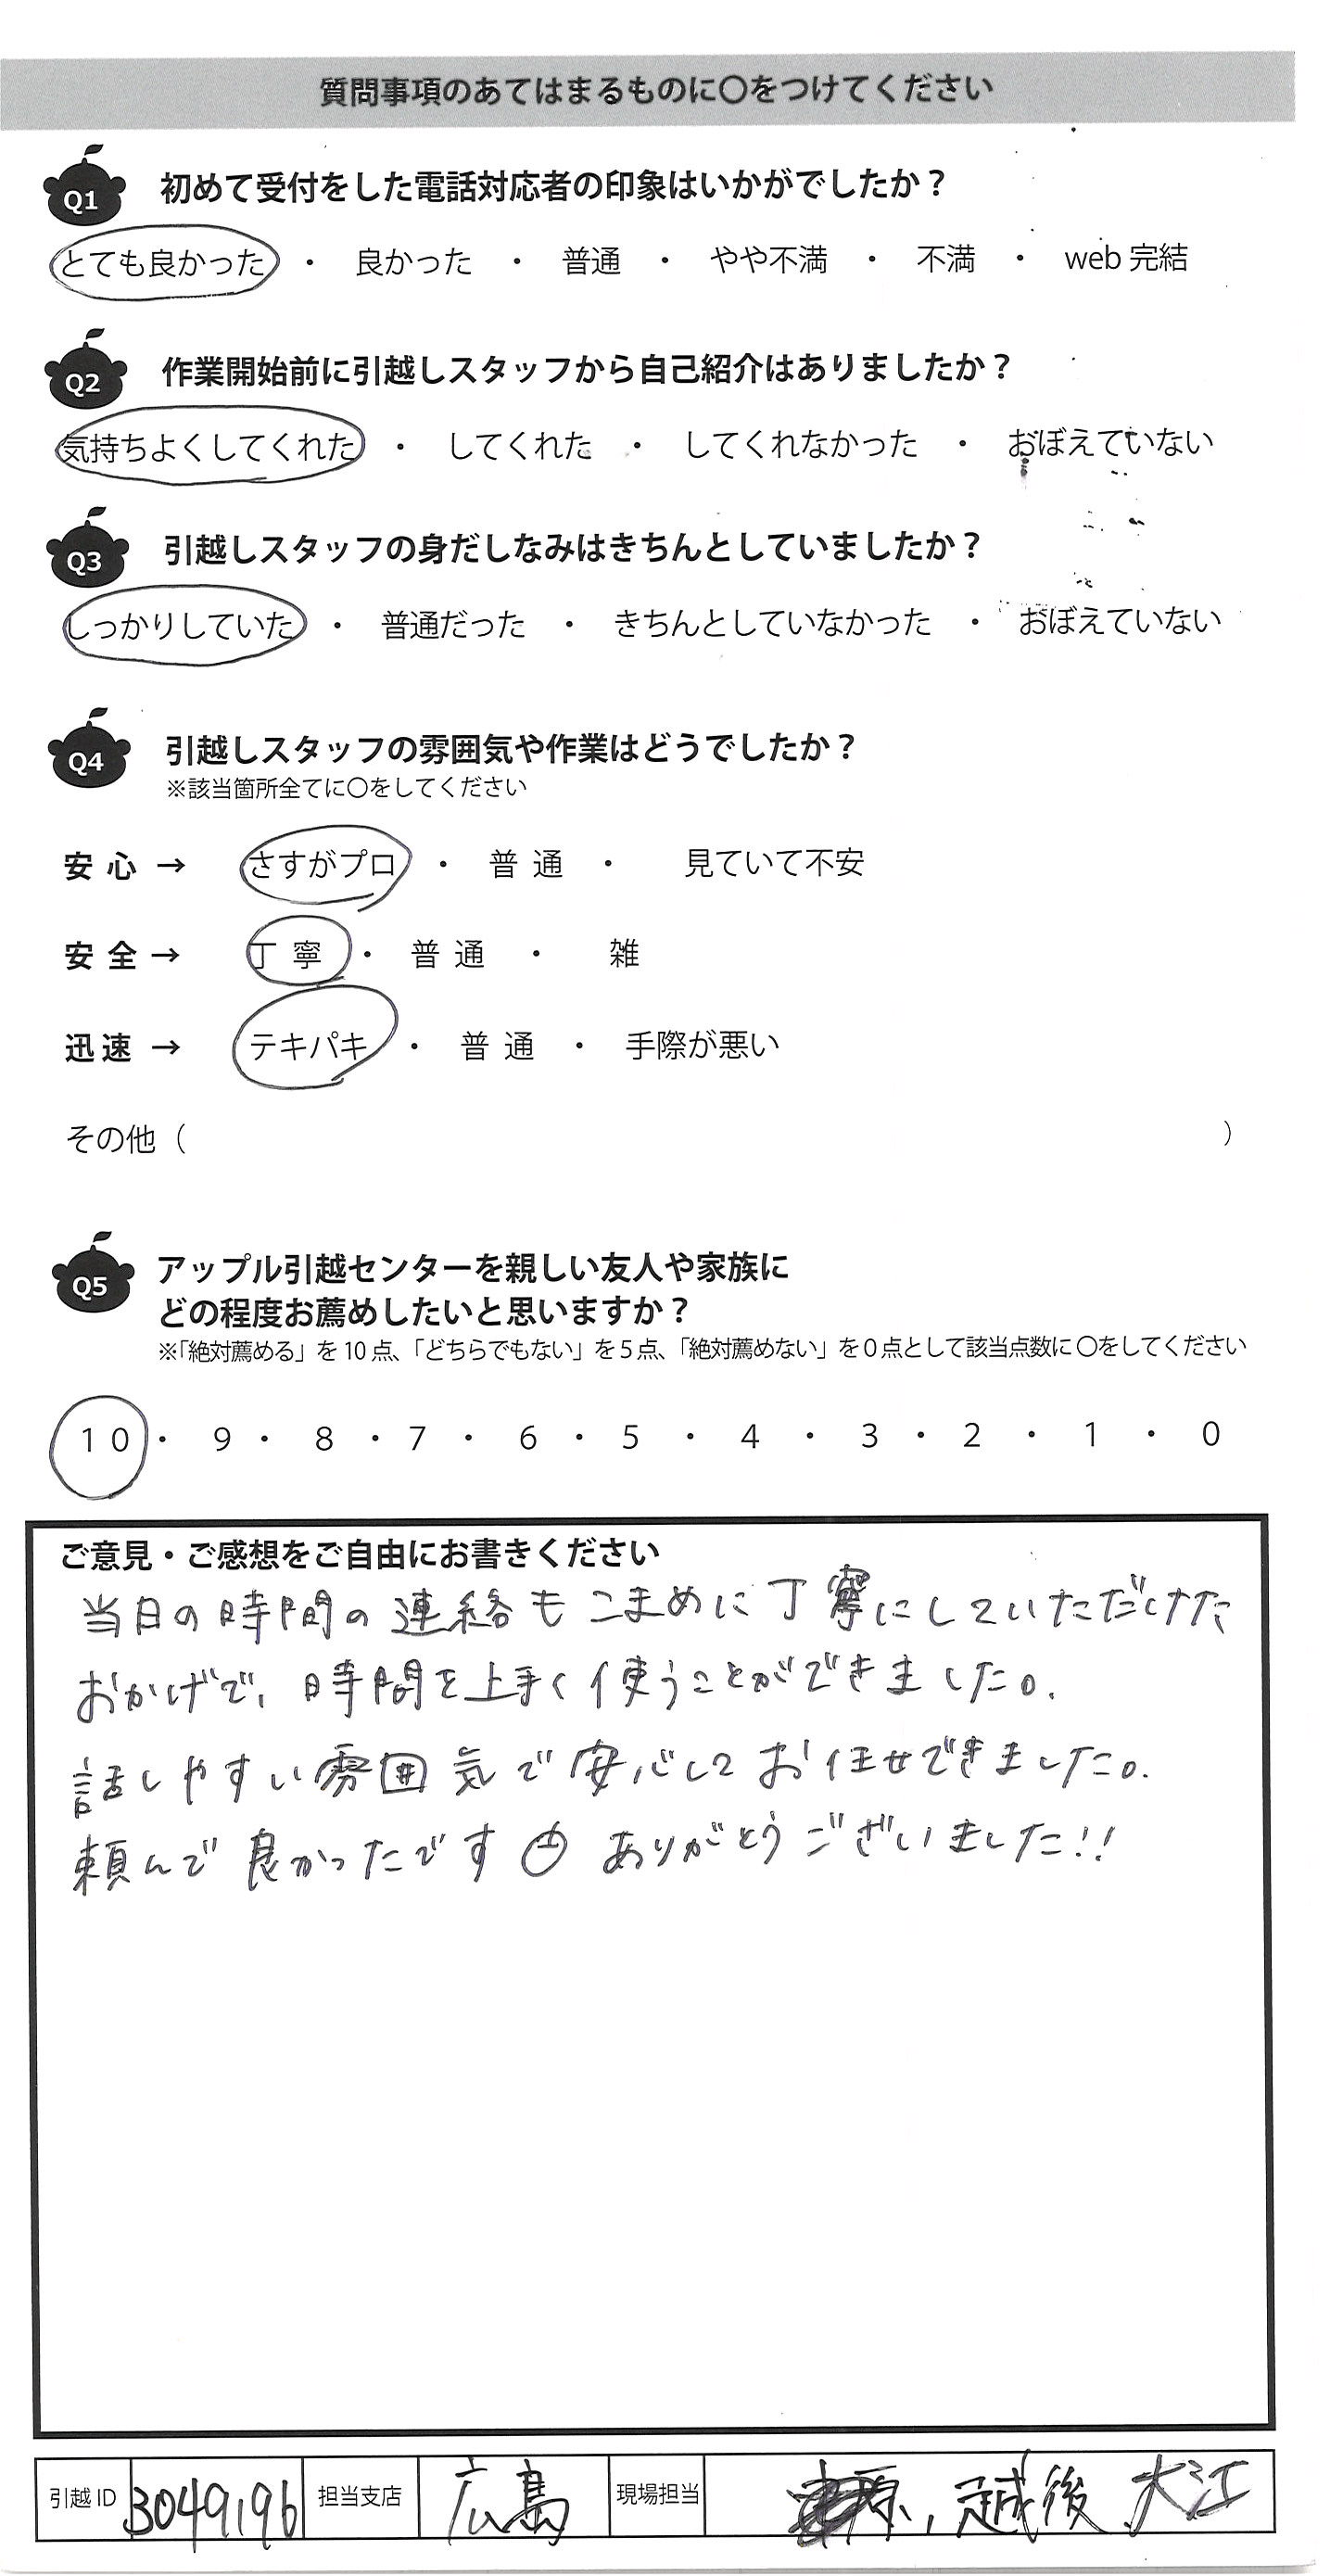 質問事項のあてはまるものに〇をつけてください
Q1 初めて受付をした電話対応者の印象はいかがでしたか？
とても良かった ・ 良かった ・ 普通 ・ やや不満 ・ 不満 ・ web 完結
Q2 作業開始前に引越しスタッフから自己紹介はありましたか？
気持ちよくしてくれた ・ してくれた ・ してくれなかった ・ おぼえていない
Q3 引越しスタッフの身だしなみはきちんとしていましたか？
しっかりしていた ・ 普通だった ・ きちんとしていなかった ・ おぼえていない
Q4 引越しスタッフの雰囲気や作業はどうでしたか？
※該当箇所全てに〇をしてください
安心 → さすがプロ ・ 普通 ・ 見ていて不安
安全 → 丁寧 ・ 普通 ・ 雑
迅速 → テキパキ ・ 普通 ・ 手際が悪い
その他（ ）
Q5 アップル引越センターを親しい友人や家族に
どの程度お薦めしたいと思いますか？
※「絶対薦める」を10点、「どちらでもない」を5点、「絶対薦めない」を0点として該当点数に〇をしてください
10 ・ 9 ・ 8 ・ 7 ・ 6 ・ 5 ・ 4 ・ 3 ・ 2 ・ 1 ・ 0
ご意見・ご感想をご自由にお書きください
当日の時間の連絡もこまめに丁寧にしていただけた
おかげで、時間を上手く使うことができました。
話しやすい雰囲気で安心してお任せできました。
頼んで良かったです ありがとうございました!!
引越ID 3049196 担当支店 広島 現場担当 原、越後 大江